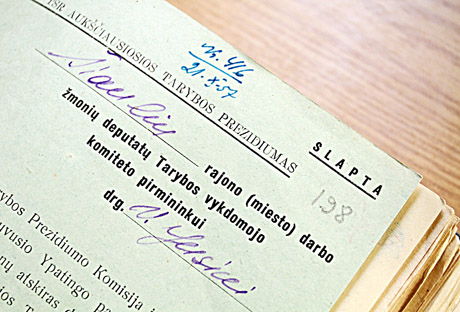 TSR AUKŠČIAUSIOSIOS TARYBOS PREZIDIUMAS
21.X.57
SLAPTA
Šiaulių rajono (miesto) darbo
žmonių deputatų Tarybos vykdomojo
komiteto pirmininkui
drg.
198
Prezidiumo Komisija
Ypatingo
atskiras
Tarybos